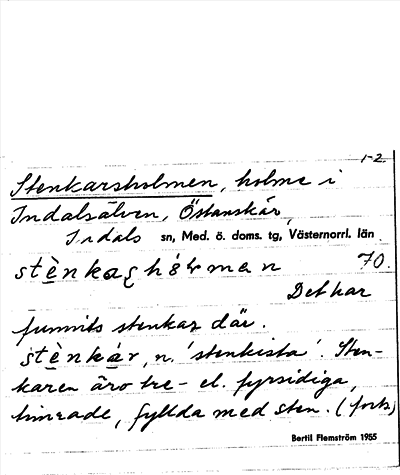 1-2.
Stenkarsholmen, holme i
Indalsälven, Östanskär,
Indals sn, Med. ö. doms. tg, Västernorrl. län
70.
Det har
funnits stenkar där.
stènkár, n. 'stenkista'. Sten-
karen äro tre- el. fyrsidiga,
timrade, fyllda med sten. (forts)
Bertil Flemström 1955